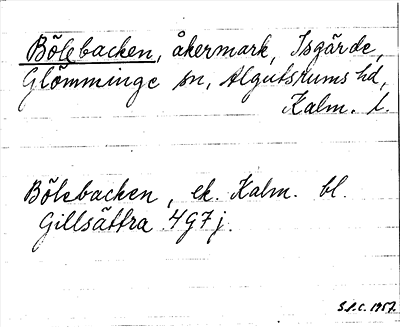 Bölebacken, åkermark, Isgärde,
Glömminge sn, Algutsrums hd,
Kalm. l.
Bölebacken, ek. Kalm. bl.
Gillsättra 4G7j.
S.P.C. 1957.